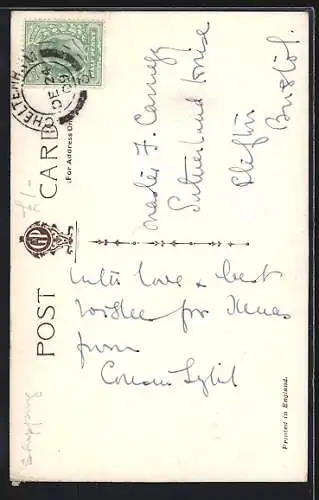 POST CARD
(For Address Only)
GPD
CHELTENHAM
DE 24
Master F. Carnegy
Sutherland House
Clifton
Bristol.
With love & best
wishes for Xmas
from
Cousin Sybil
Printed in England.
Shipping